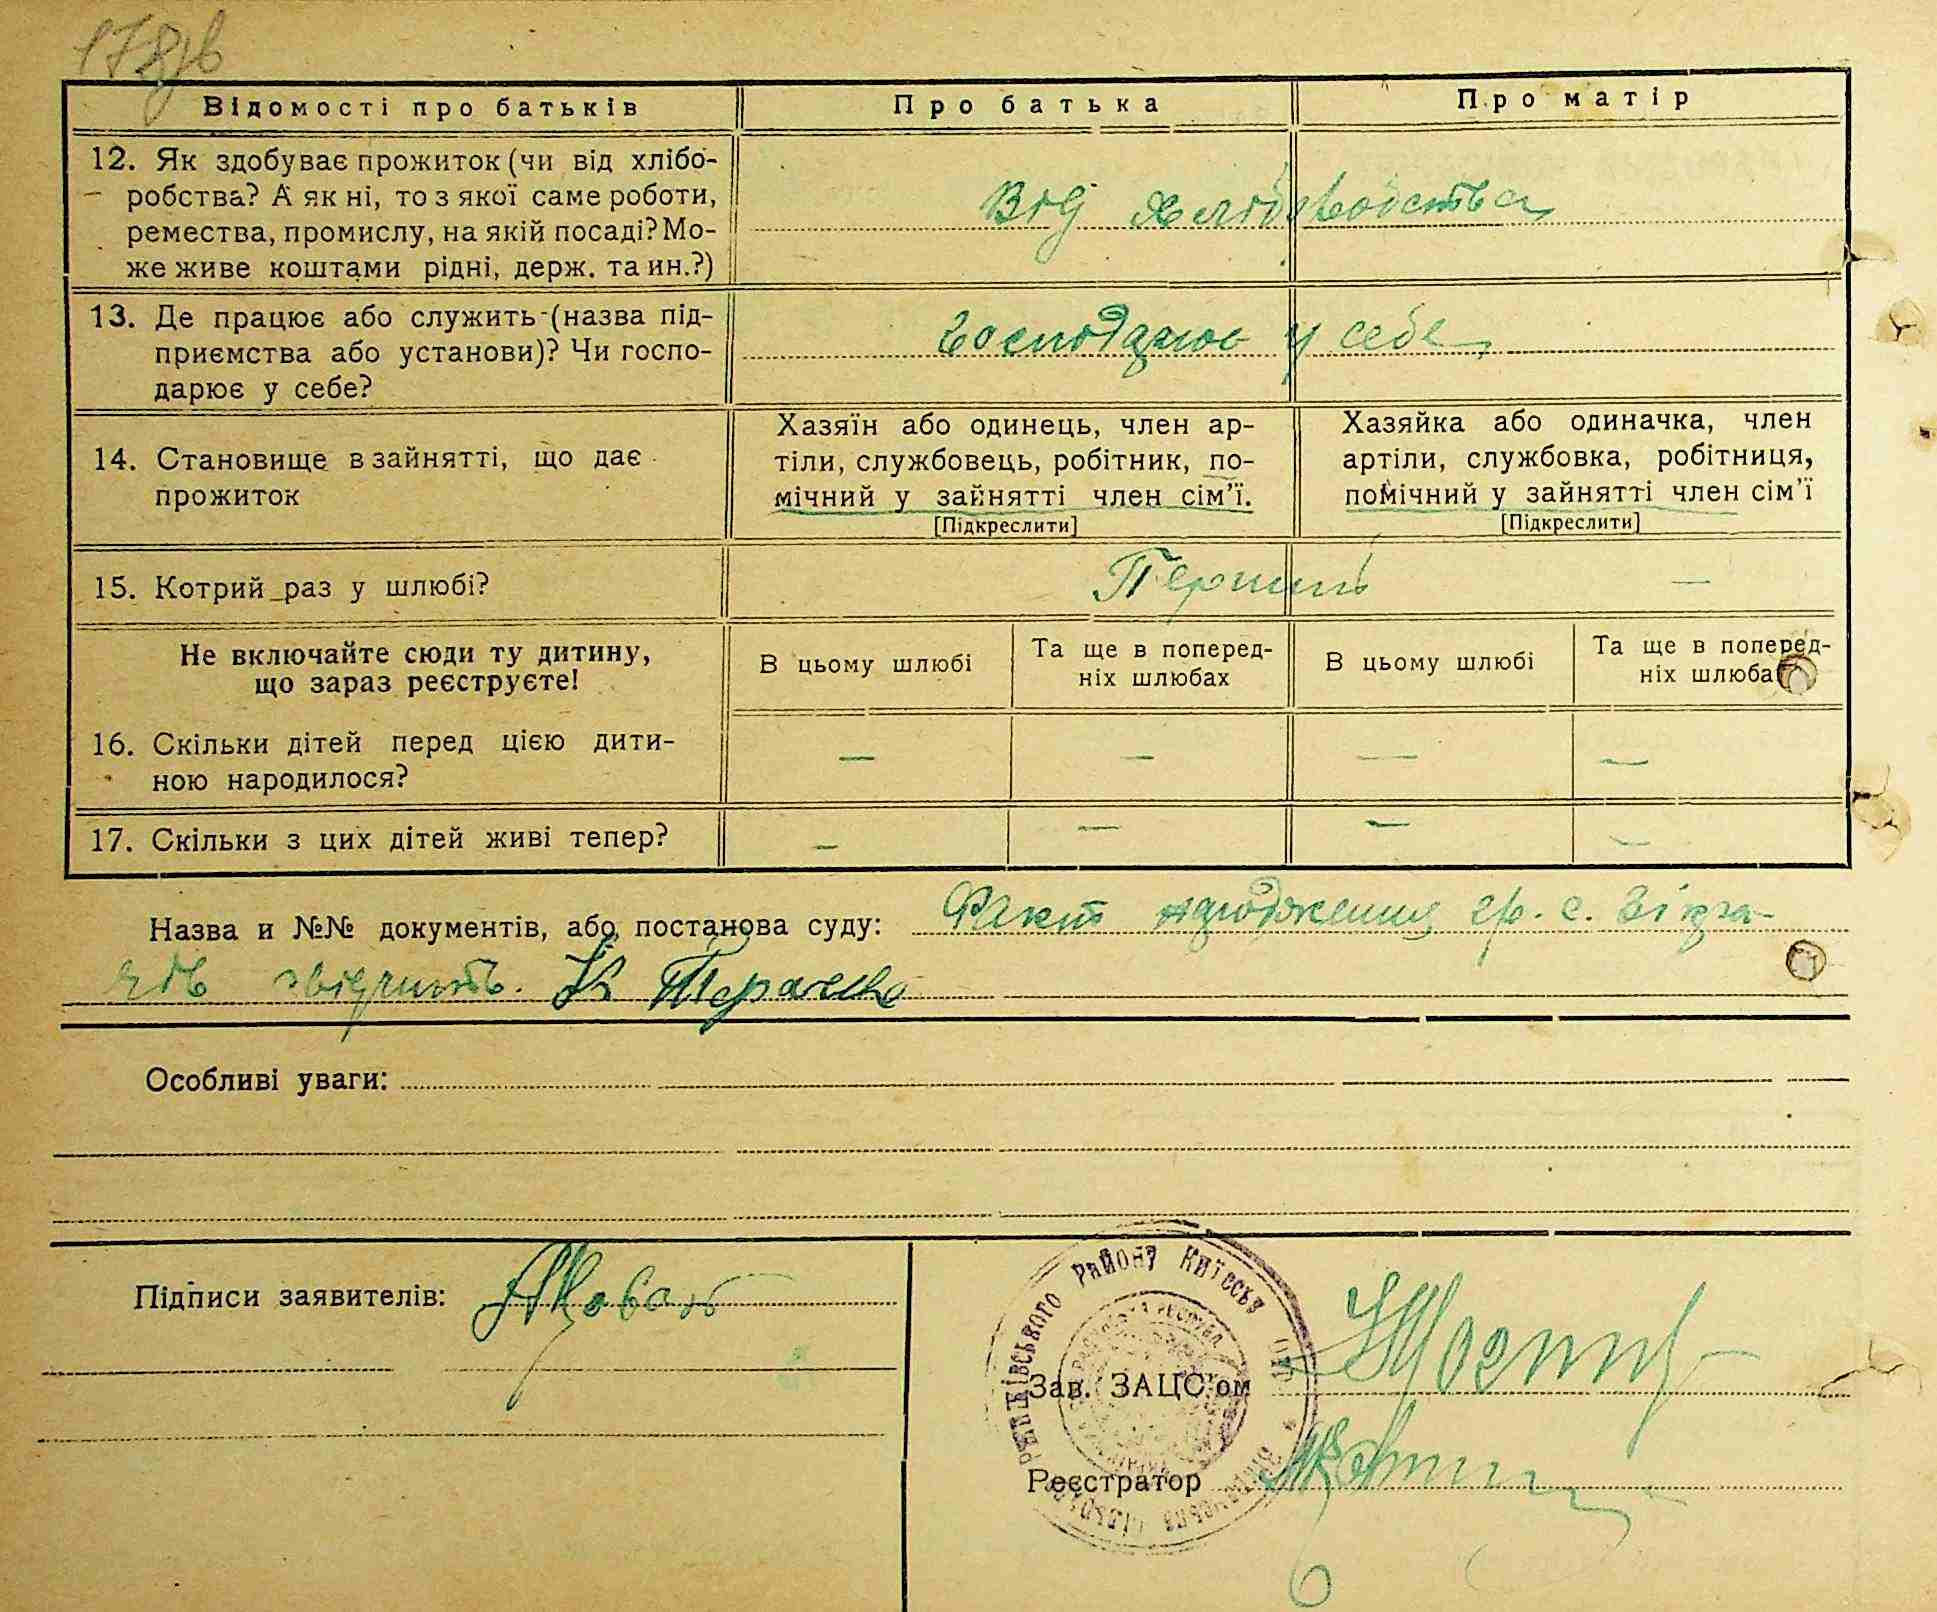 178зв
Відомості про батьків
Про батька
Про матір
12. Як здобуває прожиток (чи від хлібо-
робства? А як ні, то з якої саме роботи,
ремества, промислу, на якій посаді? Мо-
же живе коштами рідні, держ. та ин.?)
Від хліборобства
13. Де працює або служить (назва під-
приємства або установи)? Чи госпо-
дарює у себе?
Господарює у себе
14. Становище в зайнятті, що дає
прожиток
Хазяїн або одинець, член ар-
тіли, службовець, робітник, по-
мічний у зайнятті член сім'ї.
[Підкреслити]
Хазяйка або одиначка, член
артіли, службовка, робітниця,
помічний у зайнятті член сім'ї
[Підкреслити]
15. Котрий раз у шлюбі?
Перший —
Не включайте сюди ту дитину,
що зараз реєструєте!
В цьому шлюбі
Та ще в поперед-
ніх шлюбах
В цьому шлюбі
Та ще в поперед-
ніх шлюба
16. Скільки дітей перед цією дити-
ною народилося?
— — — —
17. Скільки з цих дітей живі тепер?
— — — —
Назва и №№ документів, або постанова суду: Факт народження гр. с.
Особливі уваги:
Підписи заявителів:
РАЙОНУ КИЇВСЬК
Зав. ЗАЦС'ом
Реєстратор